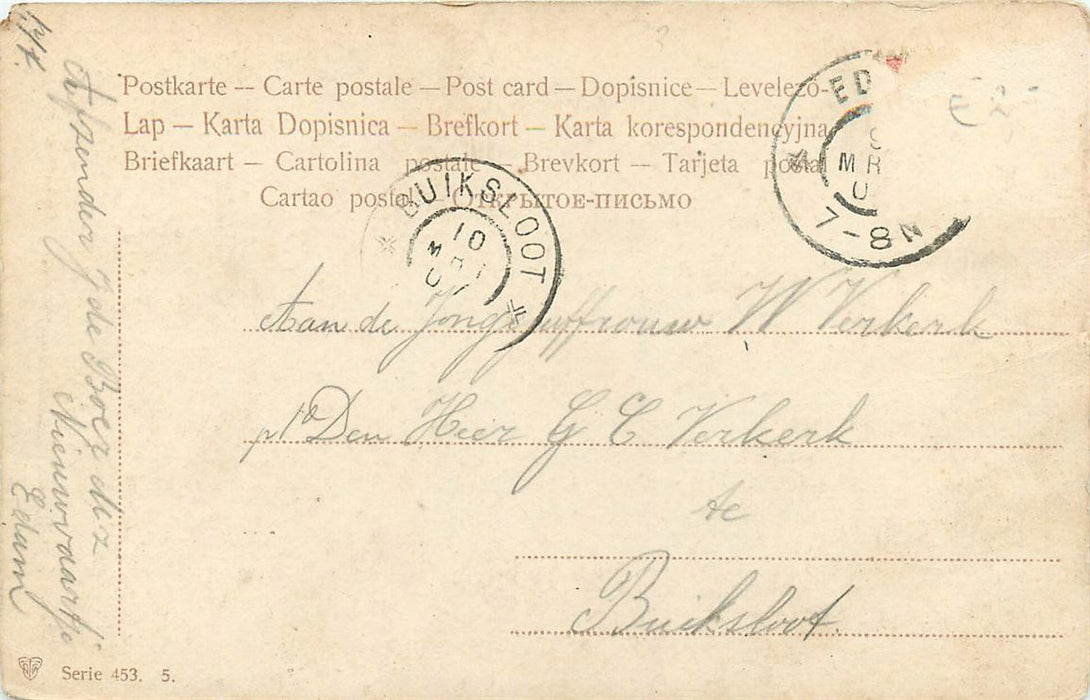 Postkarte -- Carte postale — Post card — Dopisnice — Levelező-
Lap — Karta Dopisnica — Brefkort — Karta korespondencyjna
Briefkaart — Cartolina postale — Brevkort — Tarjeta postal
Cartao postal Открытое-письмо
ED
MR
7-8N
BUIKSLOOT
10
MRT
Aan de Jongejuffrouw W Verkerk
p/a Den Heer G C Verkerk
te
Buiksloot
Afzender J de Boer Mz
Nieuwvaartje
Edam
Serie 453. 5.